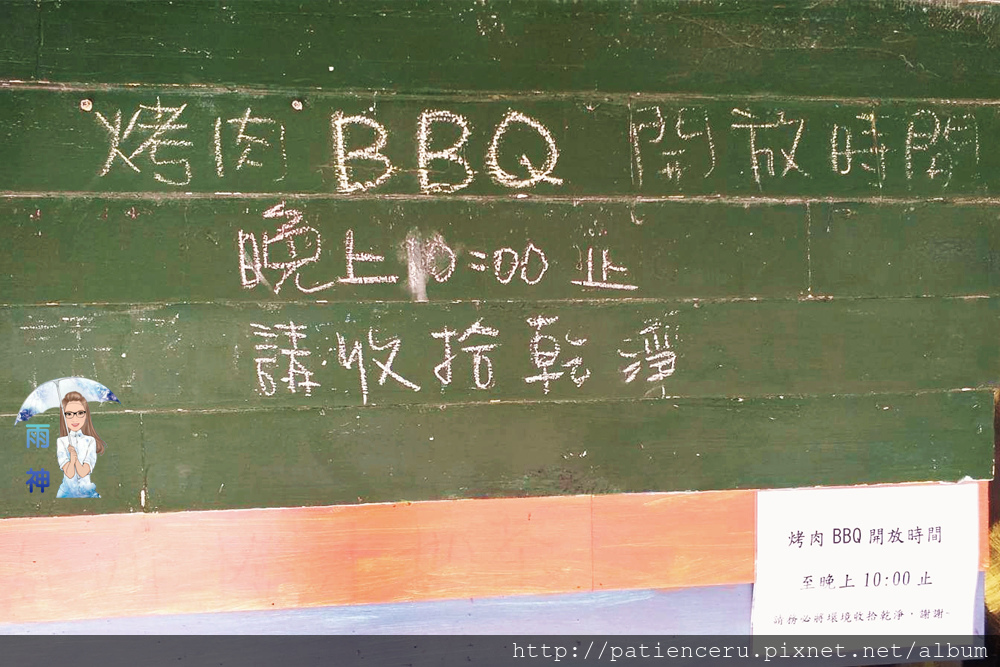 烤肉 BBQ 開放時間
晚上10:00 止
請收拾乾淨
雨
神
烤肉 BBQ 開放時間
至晚上 10:00 止
請務必將環境收拾乾淨,謝謝~
http://patienceru.pixnet.net/album